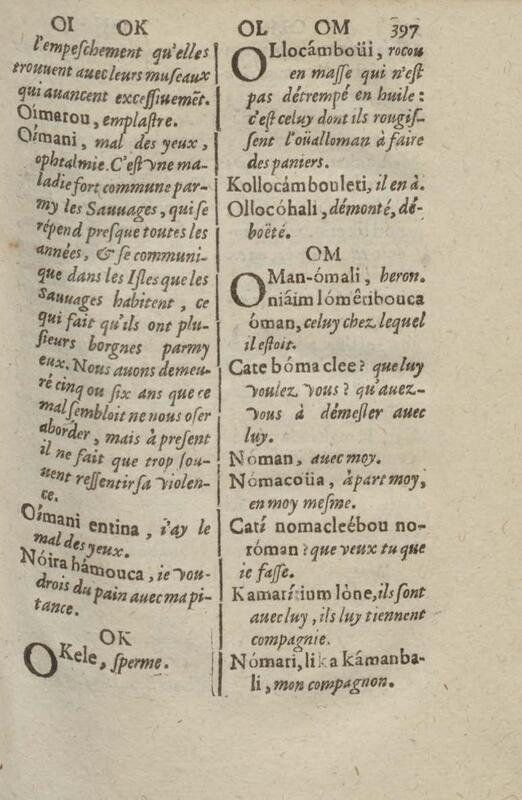 OI OK OL OM 397
l'empeſchement qu'elles
trouuent auec leurs muſeaux
qui auancent exceſſiuemẽt.
Oímarou, emplaſtre.
Oímani, mal des yeux,
ophtalmie. C'eſt vne ma-
ladie fort commune par-
my les Sauuages, qui ſe
répend preſque toutes les
années, & ſe communi-
que dans les Iſles que les
Sauuages habitent, ce
qui fait qu'ils ont plu-
ſieurs borgnes parmy
eux. Nous auons demeu-
ré cinq ou ſix ans que ce
mal ſembloit ne nous oſer
aborder, mais à preſent
il ne fait que trop ſou-
uent reſſentir ſa violen-
ce.
Oímani entina, i'ay le
mal des yeux.
Nóira hámouca, ie vou-
drois du pain auec ma pi-
tance.
OK
OKele, ſperme.
OLlocámboüi, rocou
en maſſe qui n'eſt
pas détrempé en huile:
c'eſt celuy dont ils rougiſ-
ſent l'oüalloman à faire
des paniers.
Kollocámbouleti, il en à.
Ollocóhali, démonté, dé-
boëté.
OM
OMan-ómali, heron.
Oniáim lómêtibouca
óman, celuy chez lequel
il eſtoit.
Cate bóma clee? que luy
voulez vous? qu'auez-
vous à démeſler auec
luy.
Nóman, auec moy.
Nómacoüa, à part moy,
en moy meſme.
Catí nomacleébou no-
róman? que veux tu que
ie faſſe.
Kamarítium lóne, ils ſont
auec luy, ils luy tiennent
compagnie.
Nómari, lika kámanba-
li, mon compagnon.